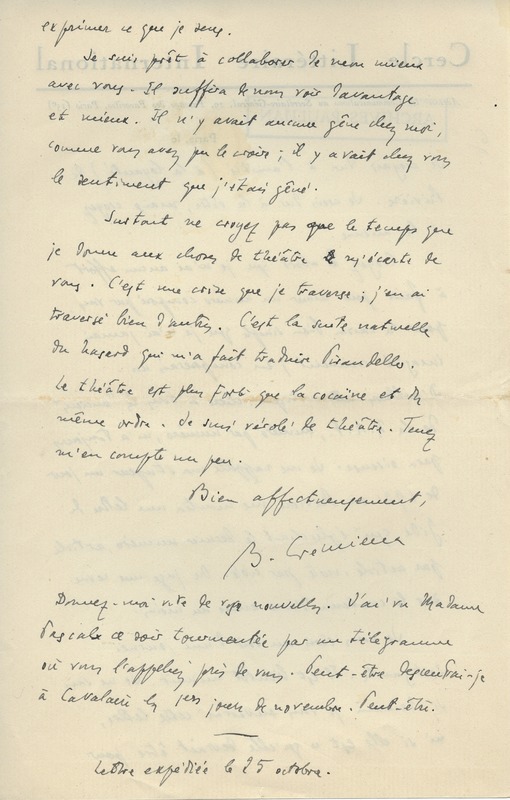 exprimer ce que je sens.
Je suis prêt à collaborer de mon mieux
avec vous. Il suffira de nous voir davantage
et mieux. Il n'y avait aucune gêne chez moi,
comme vous avez pu le croire ; il y avait chez vous
le sentiment que j'étais gêné.
Surtout ne croyez pas que le temps que
je donne aux choses de théâtre m'écarte de
vous. C'est une crise que je traverse ; j'en ai
traversé bien d'autres. C'est la suite naturelle
du hasard qui m'a fait traduire Pirandello.
Le théâtre est plus fort que la cocaïne et du
même ordre. Je suis vérolé de théâtre. Tenez
m'en compte un peu.
Bien affectueusement,
B. Crémieux
Donnez-moi vite de vos nouvelles. J'ai vu Madame
Pascal ce soir tourmentée par un télégramme
où vous l'appeliez près de vous. Peut-être descendrai-je
à Cavalaire les 1ers jours de novembre. Peut-être.
Lettre expédiée le 25 octobre.